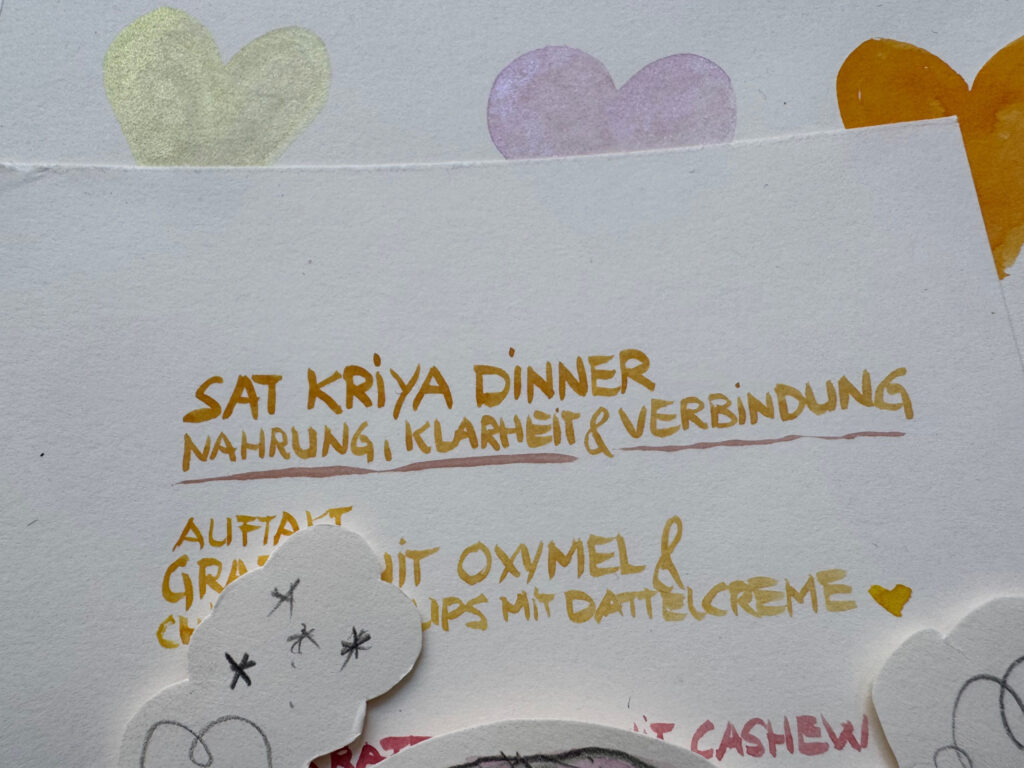 SAT KRiYA DiNNER
NAHRUNG, KLARHEiT & VERBiNDUNG
AUFTAKT
MiT OXYMEL &
MiT DATTELCREME
MiT CASHEW